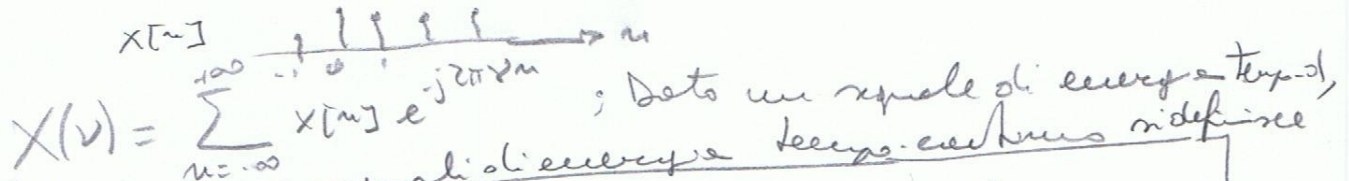 x[n] -1 0 1 n
X(ν) = ∑_{n=-∞}^{+∞} x[n] e^{-j2πνn} ; Dato un segnale di energia tempo-d,
di energia tempo-continuo si definisce